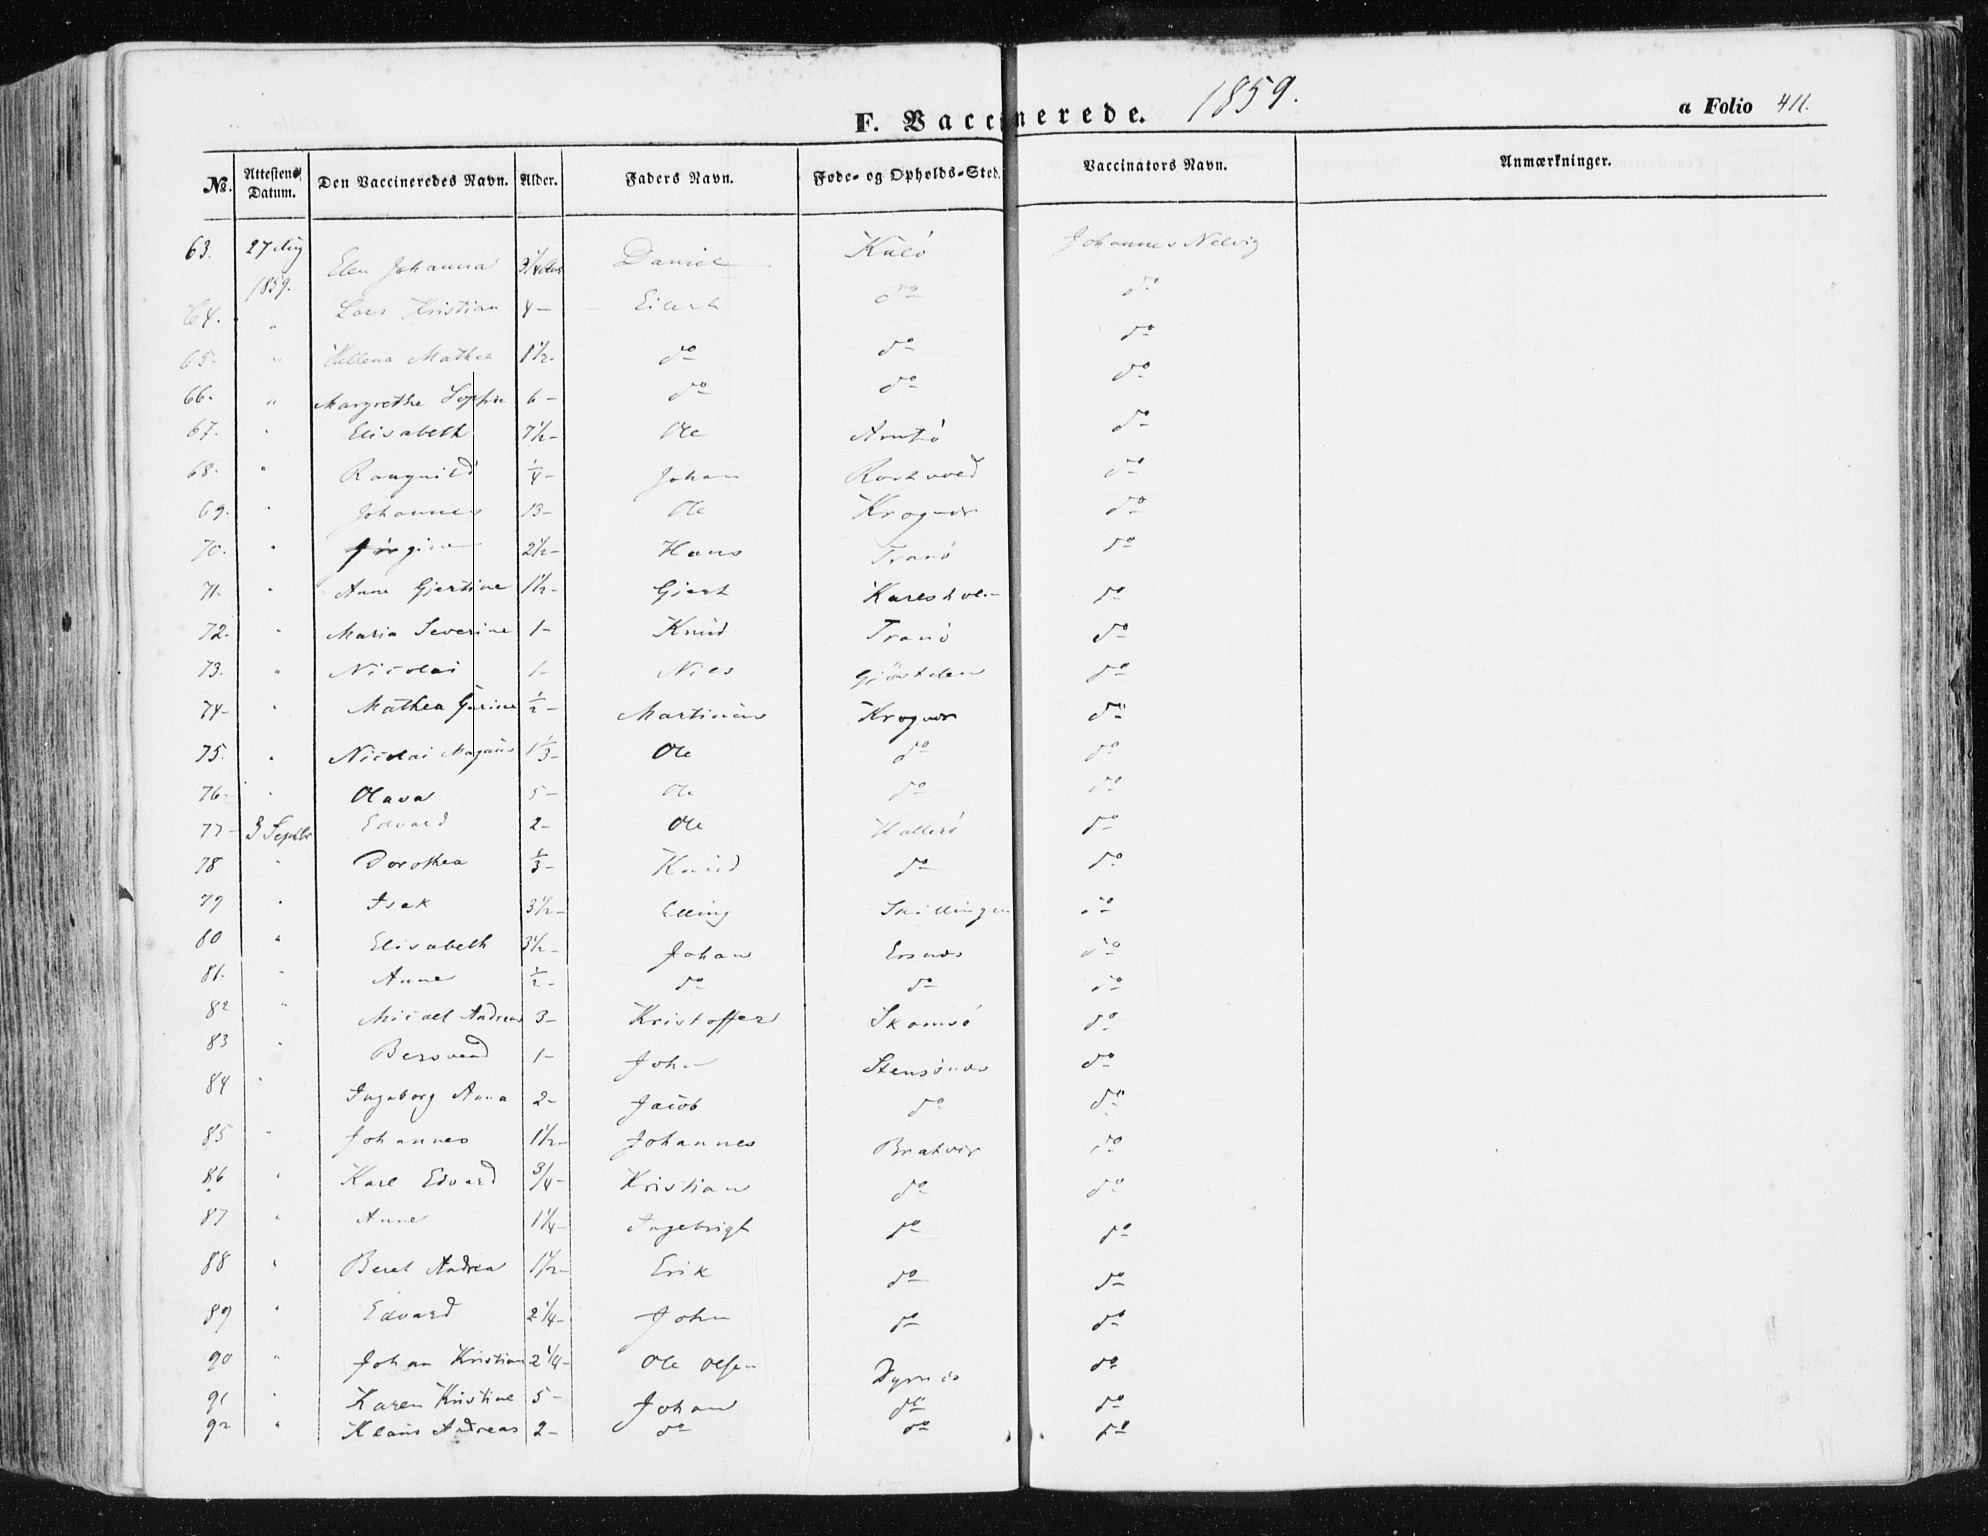 F. Vaccinerede. 1859. a Folio 411.
No. Attestens Datum. Den Vaccineredes Navn. Alder. Faders Navn. Føde- og Opholds-Sted. Vaccinators Navn. Anmærkninger.
63. 27 Aug 1859. Elen Johanna 3/4 Daniel Kulö Johannes Nelvig
64. " Lars Kristian 4 - Eilert do do
65. " Hellena Mathea 1 1/2 - do do do
66. " Margrethe Sophie 6 - do do do
67. " Elisabeth 7 1/2 - Ole do
68. " Rangnild 1/4 - Johan do
69. " Johannes 13 - Ole Krognæs do
70. " Jörgine 2 1/2 - Hans Tranö do
71. " Anne Gjertine 1 1/2 - Gjert do
72. " Maria Severine 1 - Knud Tranö do
73. " Nicolai 1 - Niels do
74 - " Mathea Gurine 1/2 - Martinus Krognæs do
75. " Nicolai Magnus 1 1/3 - Ole do do
76. " Olava 5 - Ole do do
77 - 3 Septbr Edvard 2 - Ole do
78 " Dorothea 1/3 - Knud do do
79 " Isak 3 1/2 - Elling Skillingen do
80 " Elisabeth 3 1/2 - Johan Ersnæs do
81. " Anne 1/2 - do do do
82 " Micael Andreas 3 - Kristoffer Skomsö do
83 " Bersvend 1 - John Stensönæs do
84 " Ingeborg Anna 2 - Jacob do do
85 " Johannes 1 1/2 - Johannes Bratvær do
86 " Karl Edvard 3/4 - Kristian do do
87 " Anne 1 1/4 - Ingebrigt do do
88 " Beret Andrea 1 1/2 - Erik do do
89 " Edvard 2 1/4 - John do do
90 " Johan Kristian 2 1/4 - Ole Olsen Dyrnæs do
91 " Karen Kristine 5 - Johan do do
92 " Klaus Andreas 2 - do do do